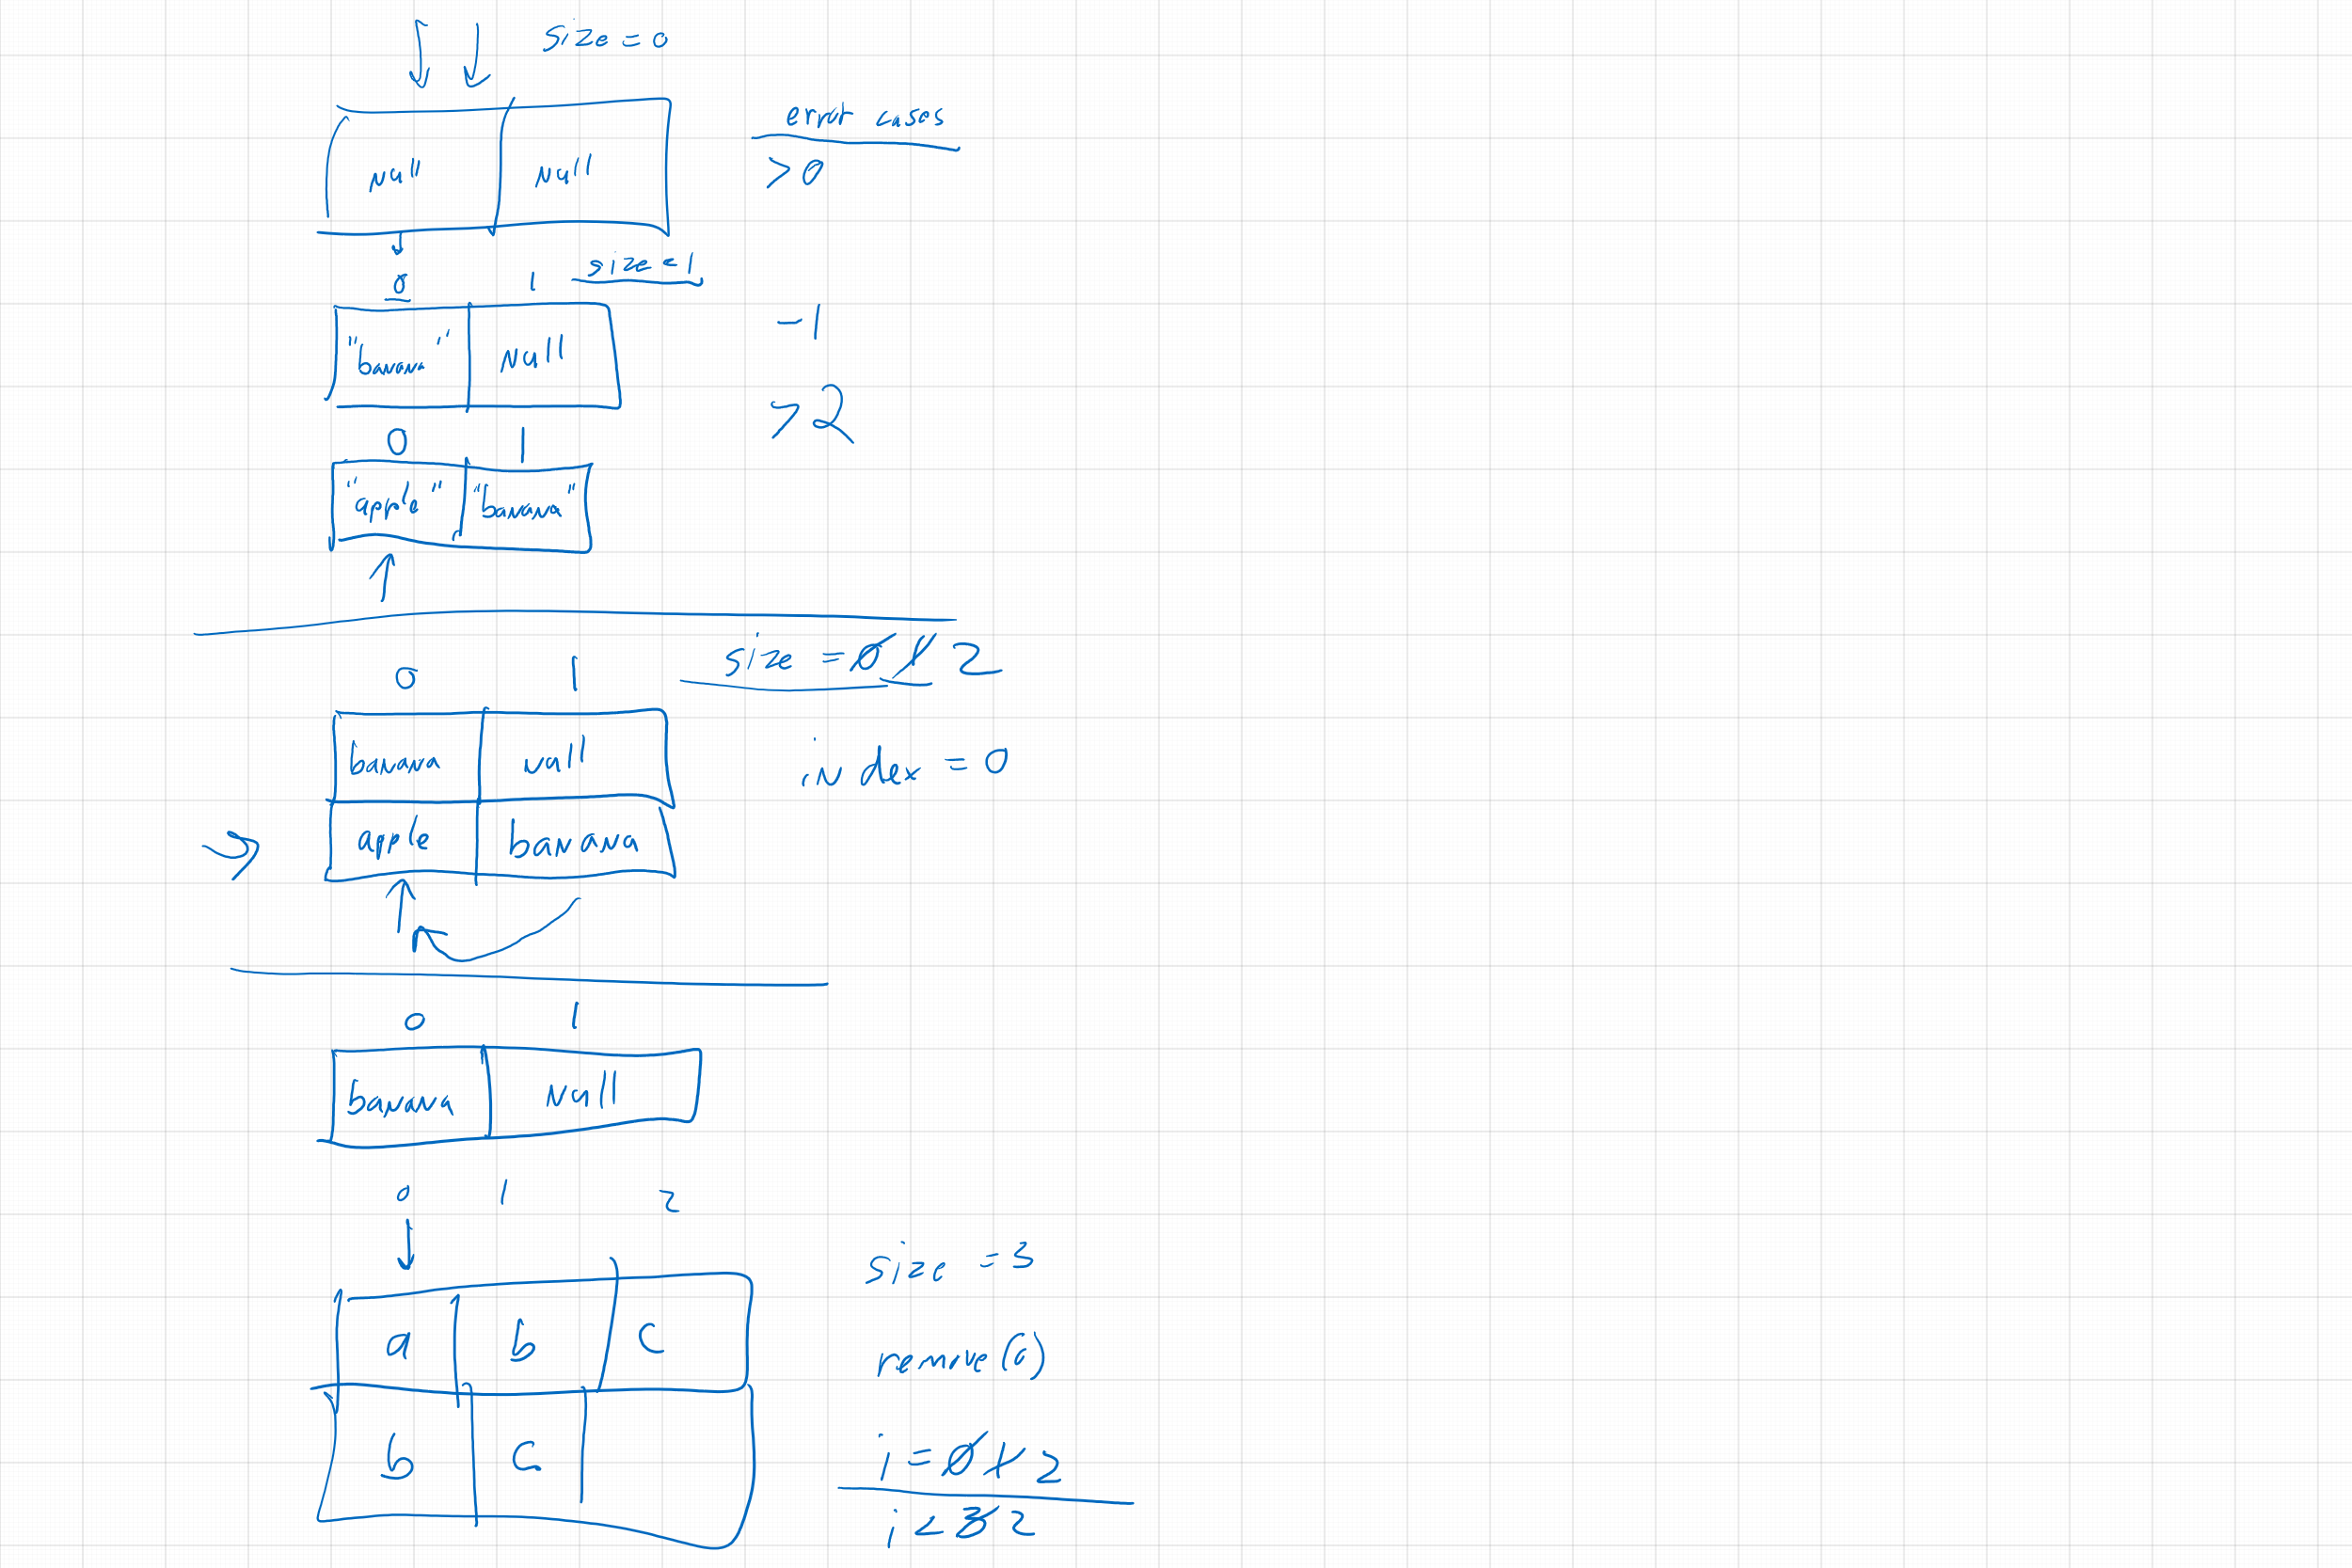 size = 0
null null
error cases
> 0
0 1 size = 1
"banana" null
-1
> 2
0 1
"apple" "banana"
size = 0 1 2
0 1
banana null
index = 0
apple banana
0 1
banana null
0 1 2
size = 3
a b c
remove(0)
b c
i = 0 1 2
i < 3 2